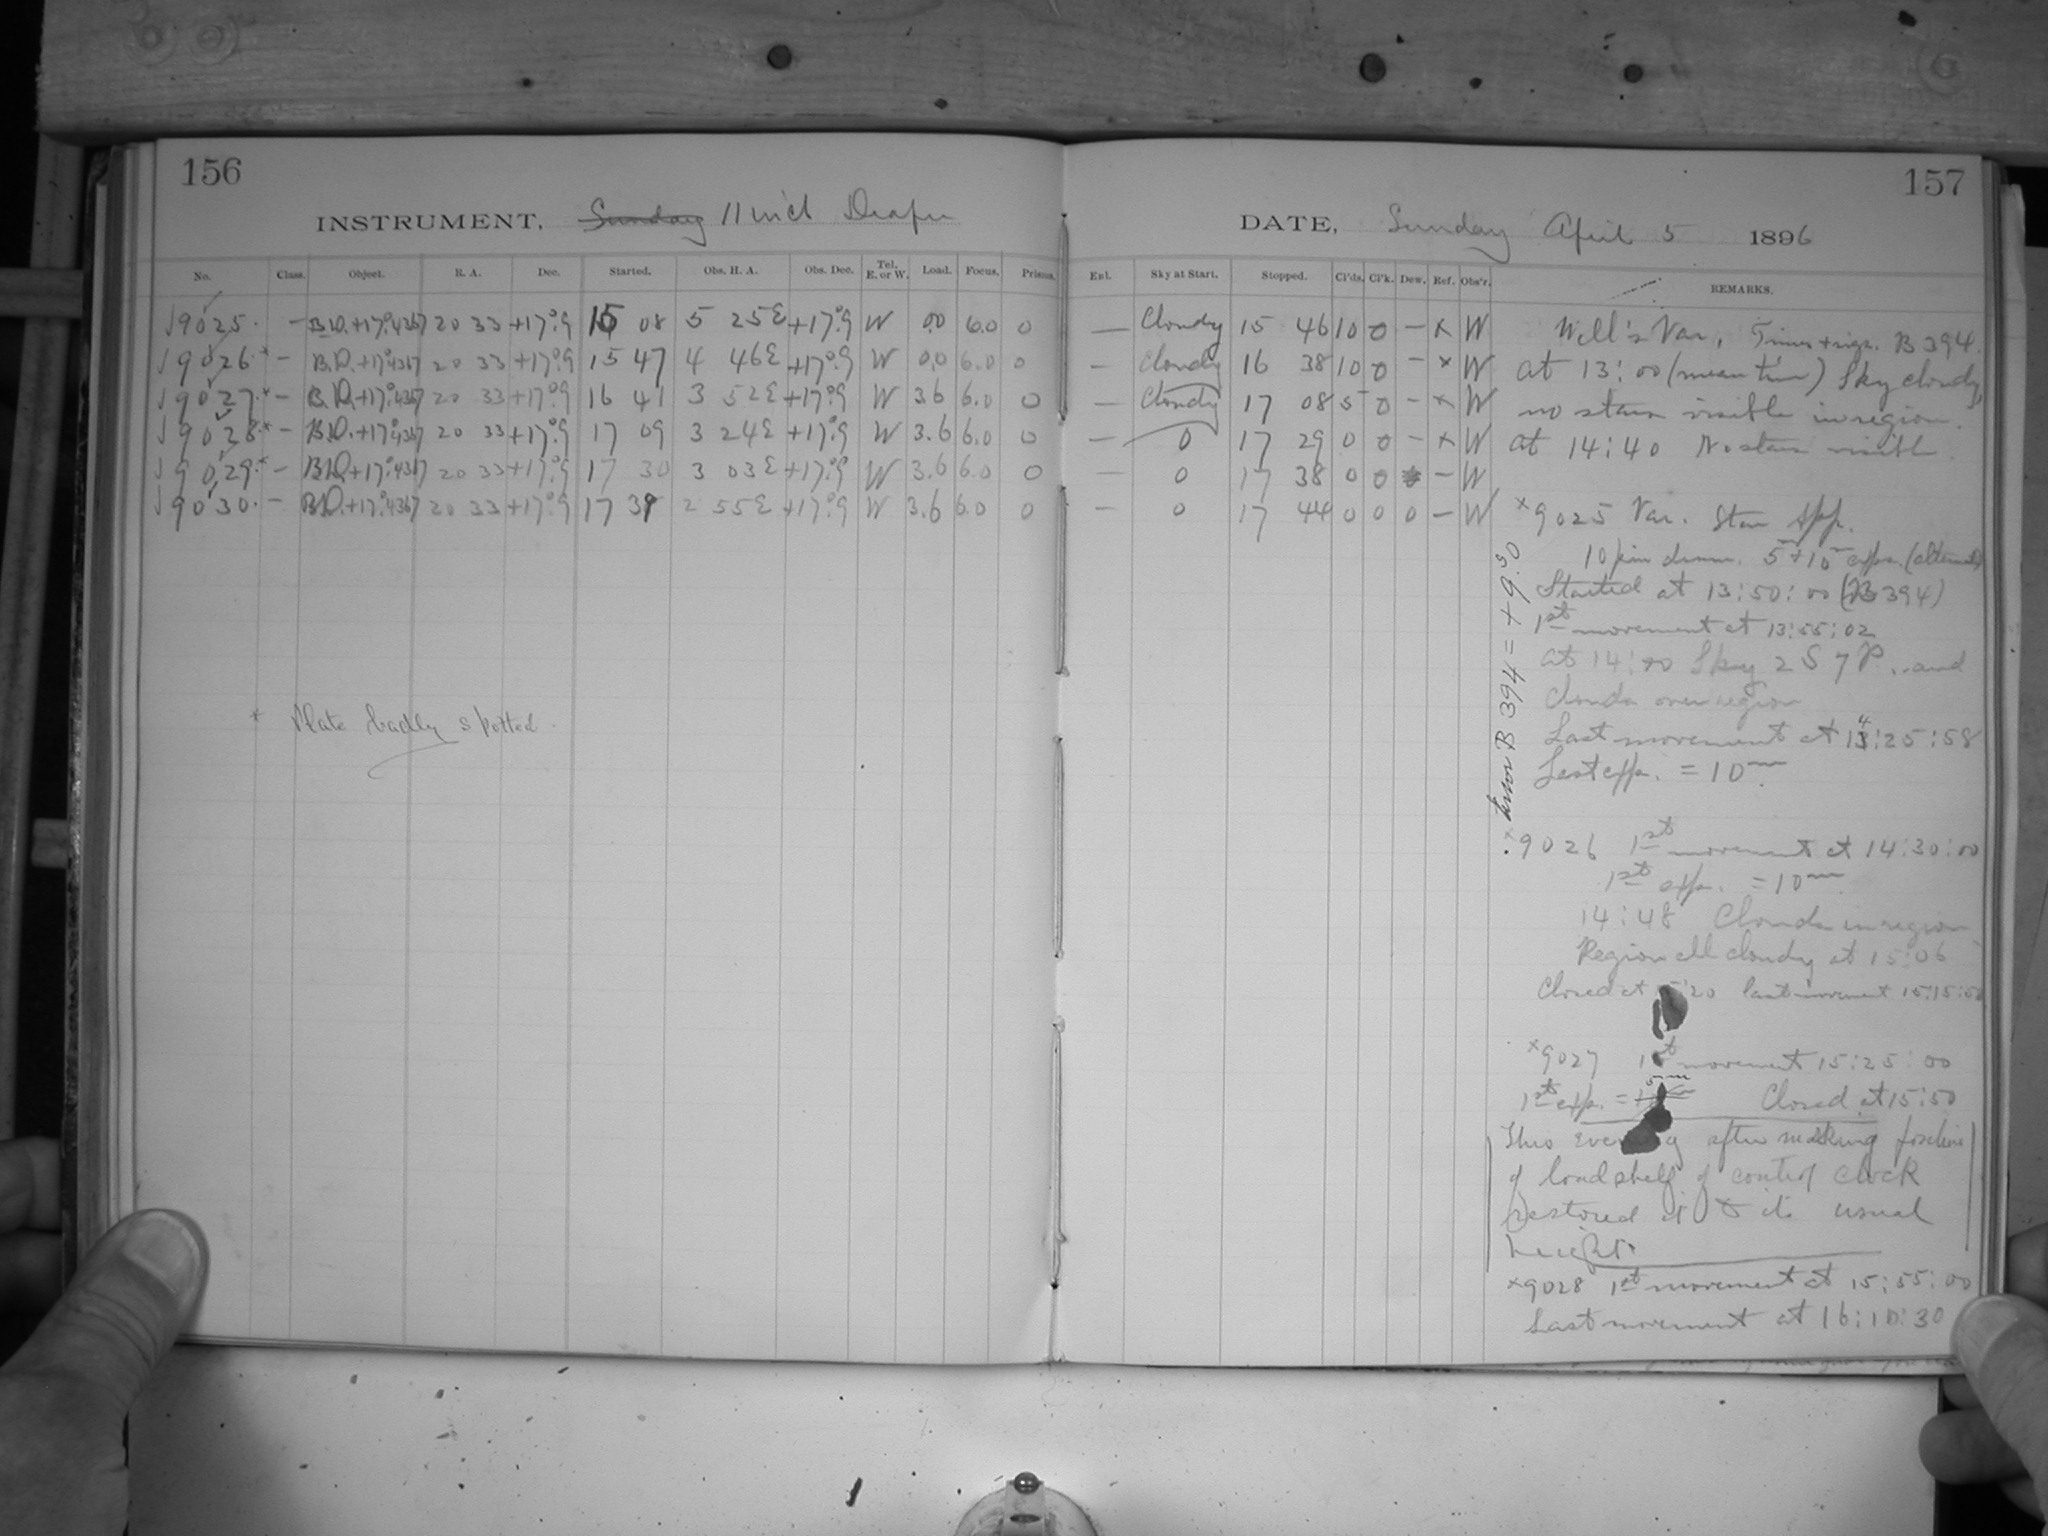 156
INSTRUMENT, Sunday 11 inch Draper
No. Class. Object. R. A. Dec. Started. Obs. H. A. Obs. Dec. Tel. E. or W. Load. Focus. Prisms.
J9025. - B.D.+17°4367 20 33 +17°.9 15 08 5 25E +17°.9 W 0.0 6.0 0
J9026* - B.D.+17°4367 20 33 +17°.9 15 47 4 46E +17°.9 W 0.0 6.0 0
J9027.* - B.D.+17°4367 20 33 +17°.9 16 41 3 52E +17°.9 W 3.6 6.0 0
J9028.* - B.D.+17°4367 20 33 +17°.9 17 09 3 24E +17°.9 W 3.6 6.0 0
J9029.* - B.D.+17°4367 20 33 +17°.9 17 30 3 03E +17°.9 W 3.6 6.0 0
J9030. - B.D.+17°4367 20 33 +17°.9 17 39 2 55E +17°.9 W 3.6 6.0 0
* Plate badly spotted.
157
DATE, Sunday April 5 1896
Enl. Sky at Start. Stopped. Cl'ds. Cl'k. Dew. Ref. Obs'r. REMARKS.
— Cloudy 15 46 10 0 - x W
— Cloudy 16 38 10 0 - x W
— Cloudy 17 08 5 0 - x W
— 0 17 29 0 0 - x W
— 0 17 38 0 0 - W
— 0 17 44 0 0 0 - W
Will's Var, B 394.
at 13:00 (mean time) Sky cloudy,
no stars visible in region.
at 14:40 No stars visible
x9025 Var. Star App.
10 pin drum. 5+10 exps.
Started at 13:50:00 (B394)
1st movement at 13:55:02
at 14:00 Sky 2 S 7 P. and
clouds over region
Last movement at 14:25:58
Last exp. = 10m
Error B 394 = +9.s0
x9026 1st movement at 14:30:00
1st exp. = 10m
14:48 Clouds in region
Region all cloudy at 15:06
Closed at 15:20 last movement
x9027 1st movement 15:25:00
1st exp. = 5m Closed at 15:50
This evening after making
of load shelf of control clock
restored it to its usual
height.
x9028 1st movement at 15:55:00
Last movement at 16:10:30